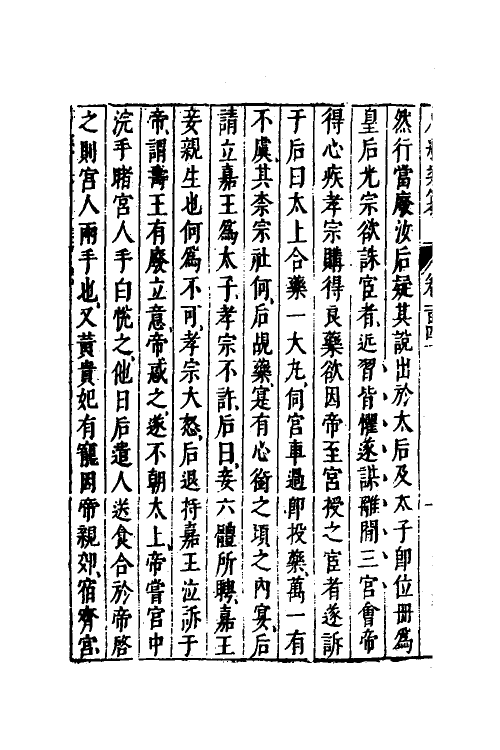 然行當廢汝后疑其說出於太后及太子卽位冊爲
皇后光宗欲誅宦者近習皆懼遂謀離間三宮會帝
得心疾孝宗購得良藥欲因帝至宮授之宦者遂訴
于后曰太上合藥一大丸伺宮車過卽投藥萬一有
不虞其柰宗社何后覘藥寔有心銜之頃之內宴后
請立嘉王爲太子孝宗不許后曰妾六體所聘嘉王
妾親生也何爲不可孝宗大怒后退持嘉王泣訴于
帝謂壽王有廢立意帝惑之遂不朝太上帝嘗宮中
浣手睹宮人手白恱之他日后遣人送食合於帝啓
之則宮人兩手也又黃貴妃有寵因帝親郊宿齊宮